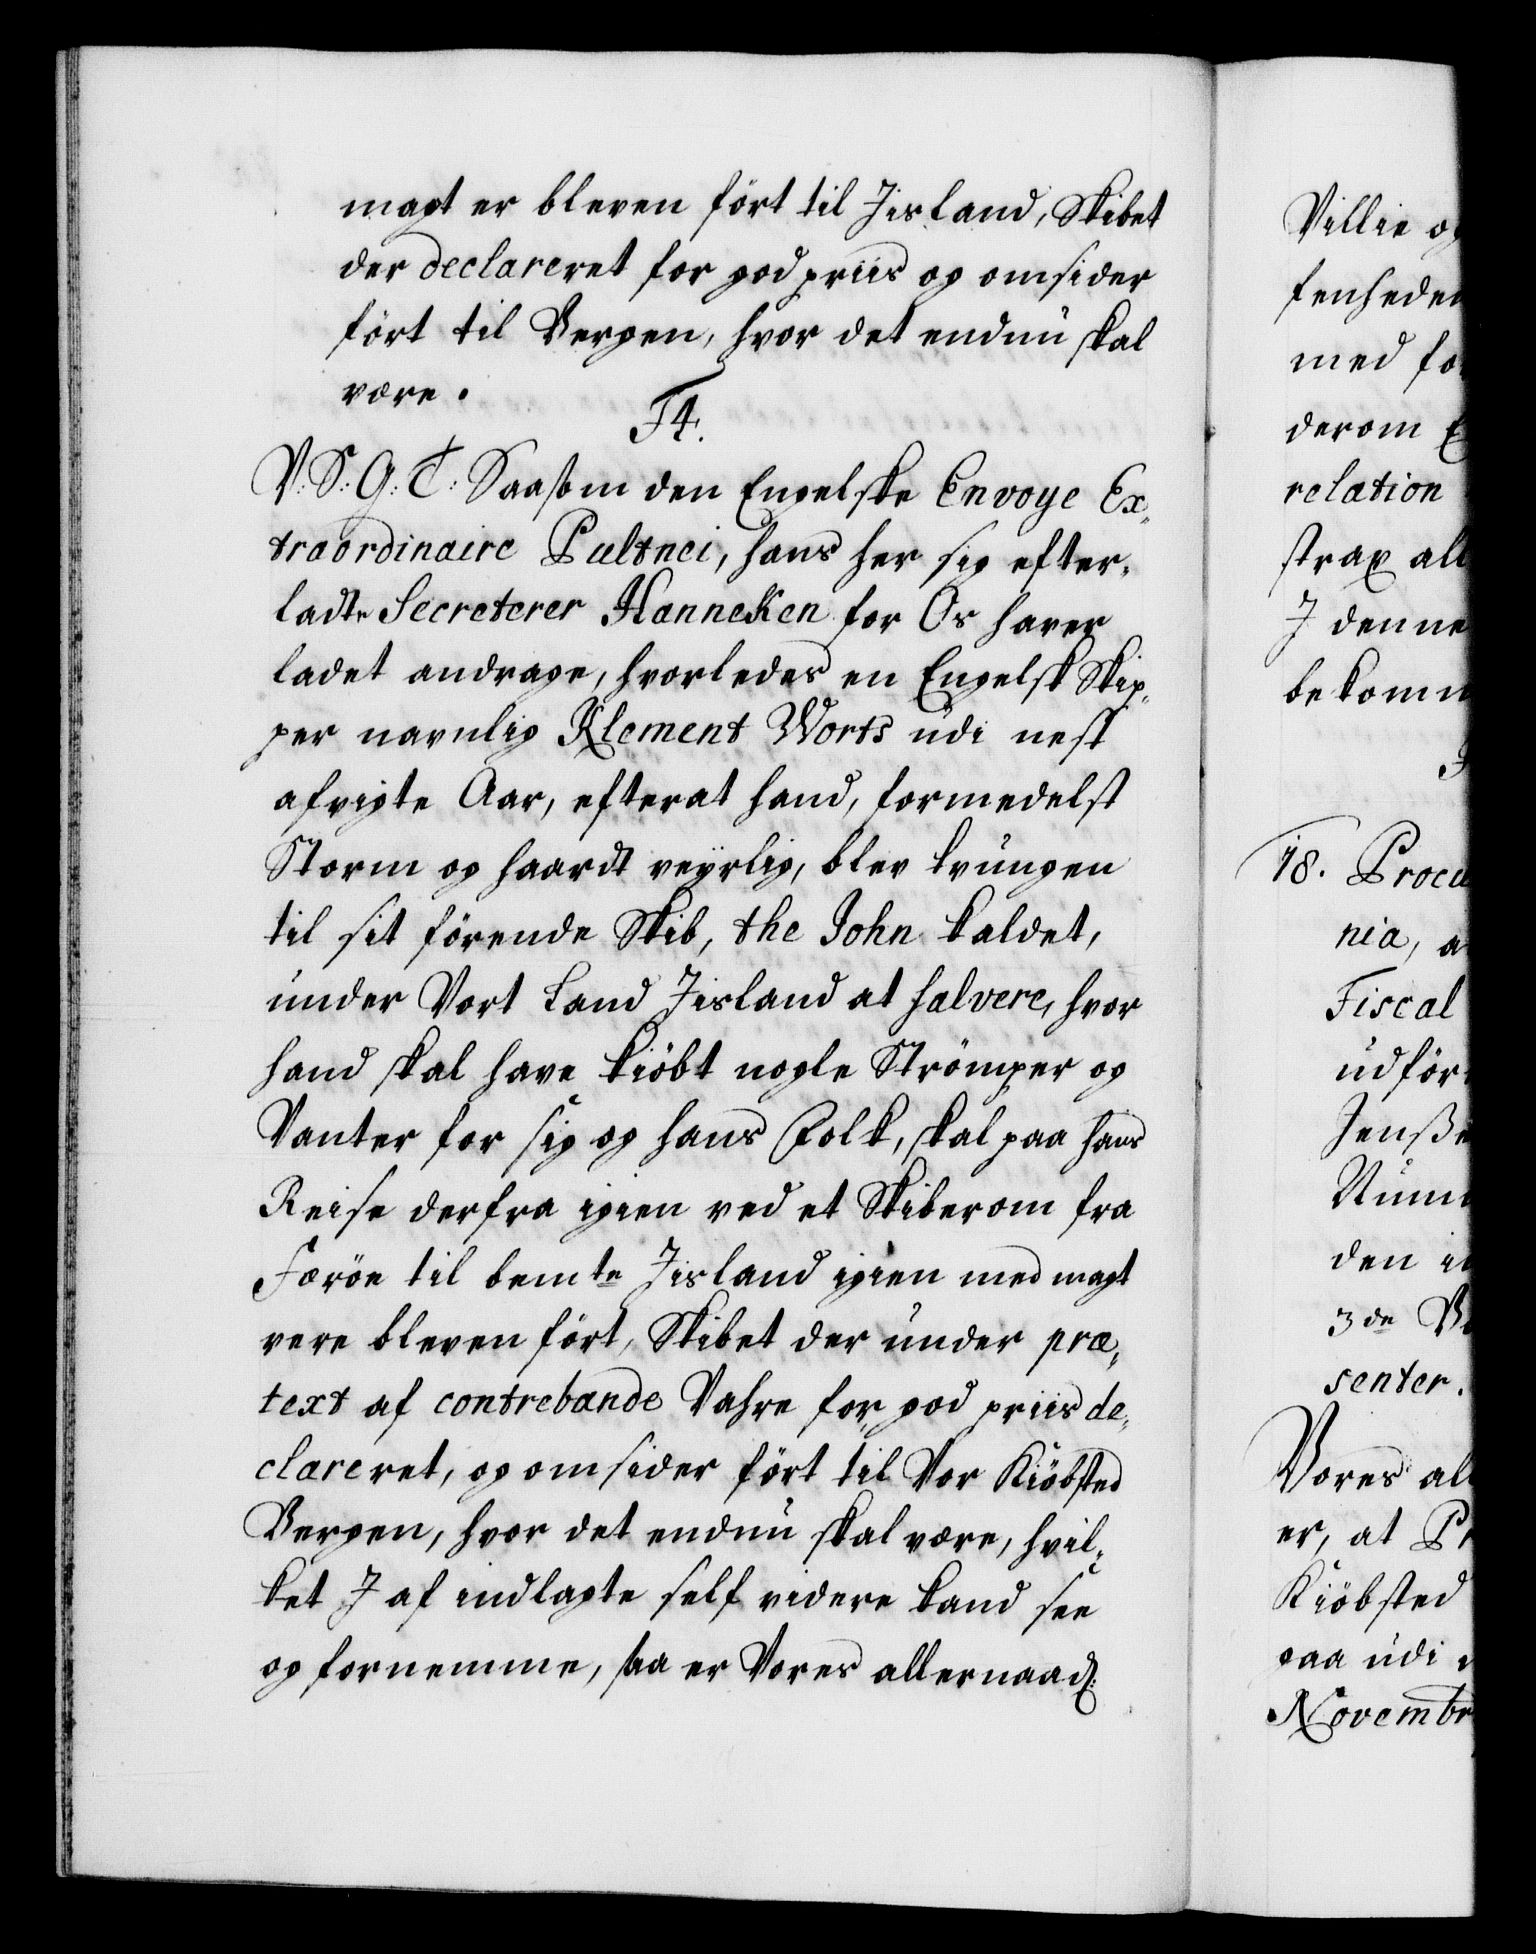 magt er bleven fört til Jisland, Skibet
der declareret for god priis og omsider
fört til Bergen, hvor det endnu skal
være.
F4.
V: S: G: T: Saasom den Engelske Envoye Ex„
traordinaire Pultnei, hans her sig efter„
ladte Secreterer Hanneken for Os haver
ladet andrage, hvorledes en Engelsk Skip„
per navnlig Klement Worts udi nest
afvigte Aar, efterat hand, formedelst
Storm og haardt veyrlig, blev tvungen
til sit förende Skib, the John kaldet,
under Vort Land Jisland at halvere, hvor
hand skal have kiöbt nogle Strömper og
Vanter for sig og hans Folk, skal paa hans
Reise derfra igien ved et Skiberom fra
Færöe til bemte Jisland igien med magt
vere bleven fört, Skibet der under præ„
text af contrebande Vahre for god priis de„
clareret, og omsider fört til Vor Kiöbsted
Bergen, hvor det endnu skal være, hvil„
ket J af indlagte self videre kand see
og fornemme, saa er Vores allernaad:
Villie og
fenheden
med fo
derom E
relation
strax all
J denne
bekomm
18. Procu
nia, a
Fiscal
udför
Jenße
Num
den i
3de B
senter.
Vores al
er, at Pr
Kiöbsted
paa udi
Novembr